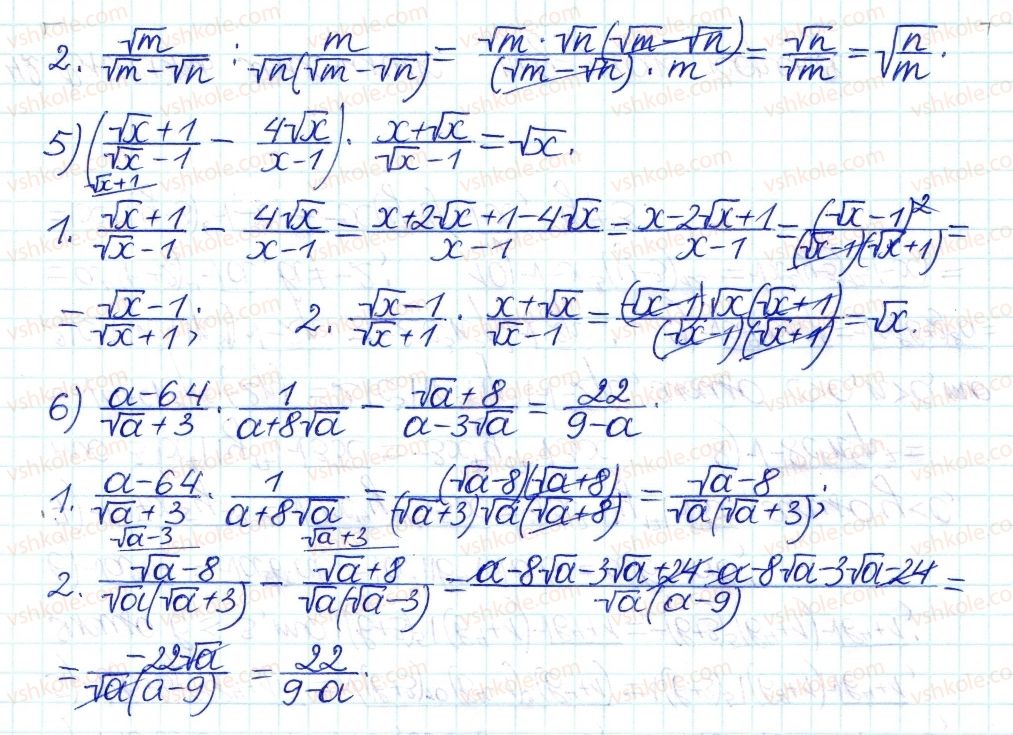 2. √m/(√m−√n) : m/(√n(√m−√n)) = (√m·√n(√m−√n))/((√m−√n)·m) = √n/√m = √(n/m).
5) ((√x+1)/(√x−1) − 4√x/(x−1)) · (x+√x)/(√x−1) = √x.
√x+1
1. (√x+1)/(√x−1) − 4√x/(x−1) = (x+2√x+1−4√x)/(x−1) = (x−2√x+1)/(x−1) = (√x−1)²/((√x−1)(√x+1)) =
= (√x−1)/(√x+1); 2. (√x−1)/(√x+1) · (x+√x)/(√x−1) = ((√x−1)√x(√x+1))/((√x−1)(√x+1)) = √x.
6) (a−64)/(√a+3) · 1/(a+8√a) − (√a+8)/(a−3√a) = 22/(9−a).
1. (a−64)/(√a+3) · 1/(a+8√a) = ((√a−8)(√a+8))/((√a+3)√a(√a+8)) = (√a−8)/(√a(√a+3));
√a−3 √a+3
2. (√a−8)/(√a(√a+3)) − (√a+8)/(√a(√a−3)) = (a−8√a−3√a+24−a−8√a−3√a−24)/(√a(a−9)) =
= −22√a/(√a(a−9)) = 22/(9−a).